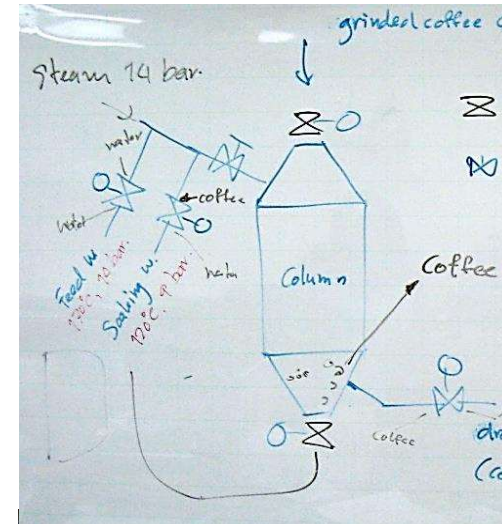 grinded coffee
Steam 14 bar.
water
coffee
water
Feed w.
Soaking w.
120°C, 9 bar.
water
Column
Coffee
coffee